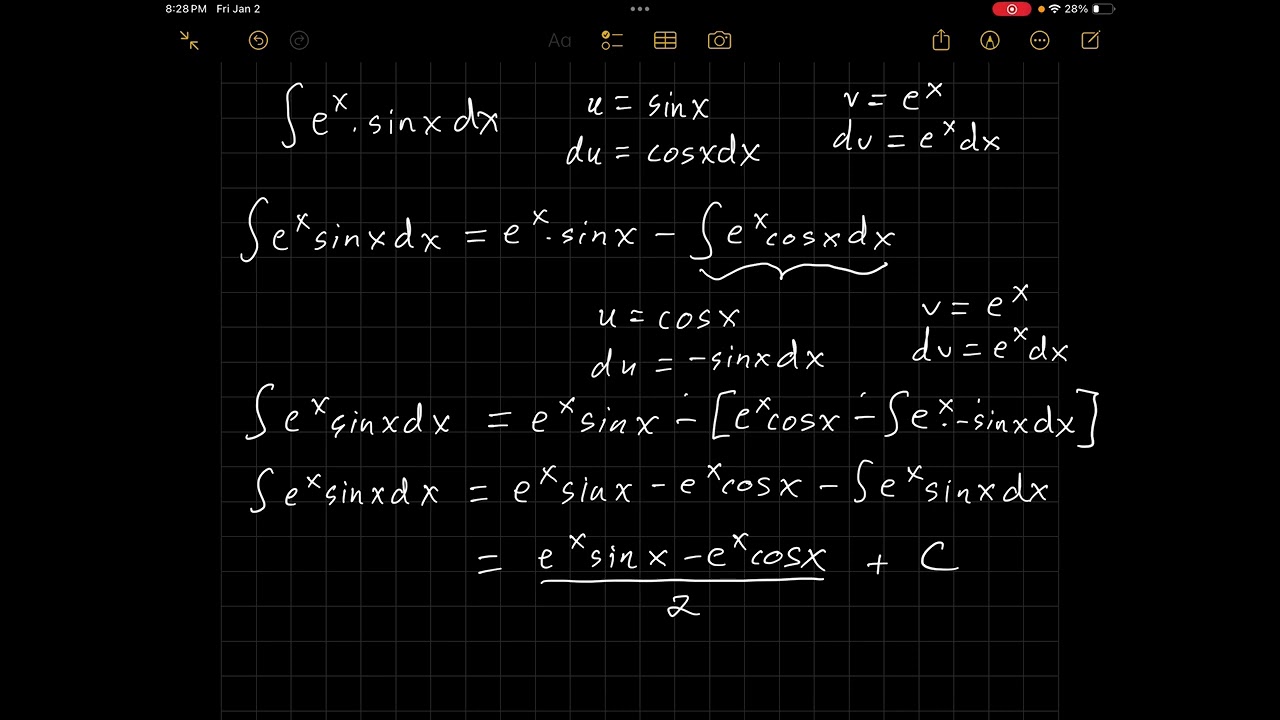 8:28 PM Fri Jan 2 28%
Aa
∫e^x · sinx dx u = sinx v = e^x
du = cosxdx dv = e^x dx
∫e^x sinxdx = e^x · sinx − ∫e^x cosxdx
u = cosx v = e^x
du = −sinxdx dv = e^x dx
∫e^x sinxdx = e^x sinx − [e^x cosx − ∫e^x · −sinxdx]
∫e^x sinxdx = e^x sinx − e^x cosx − ∫e^x sinxdx
= e^x sinx − e^x cosx + C
2